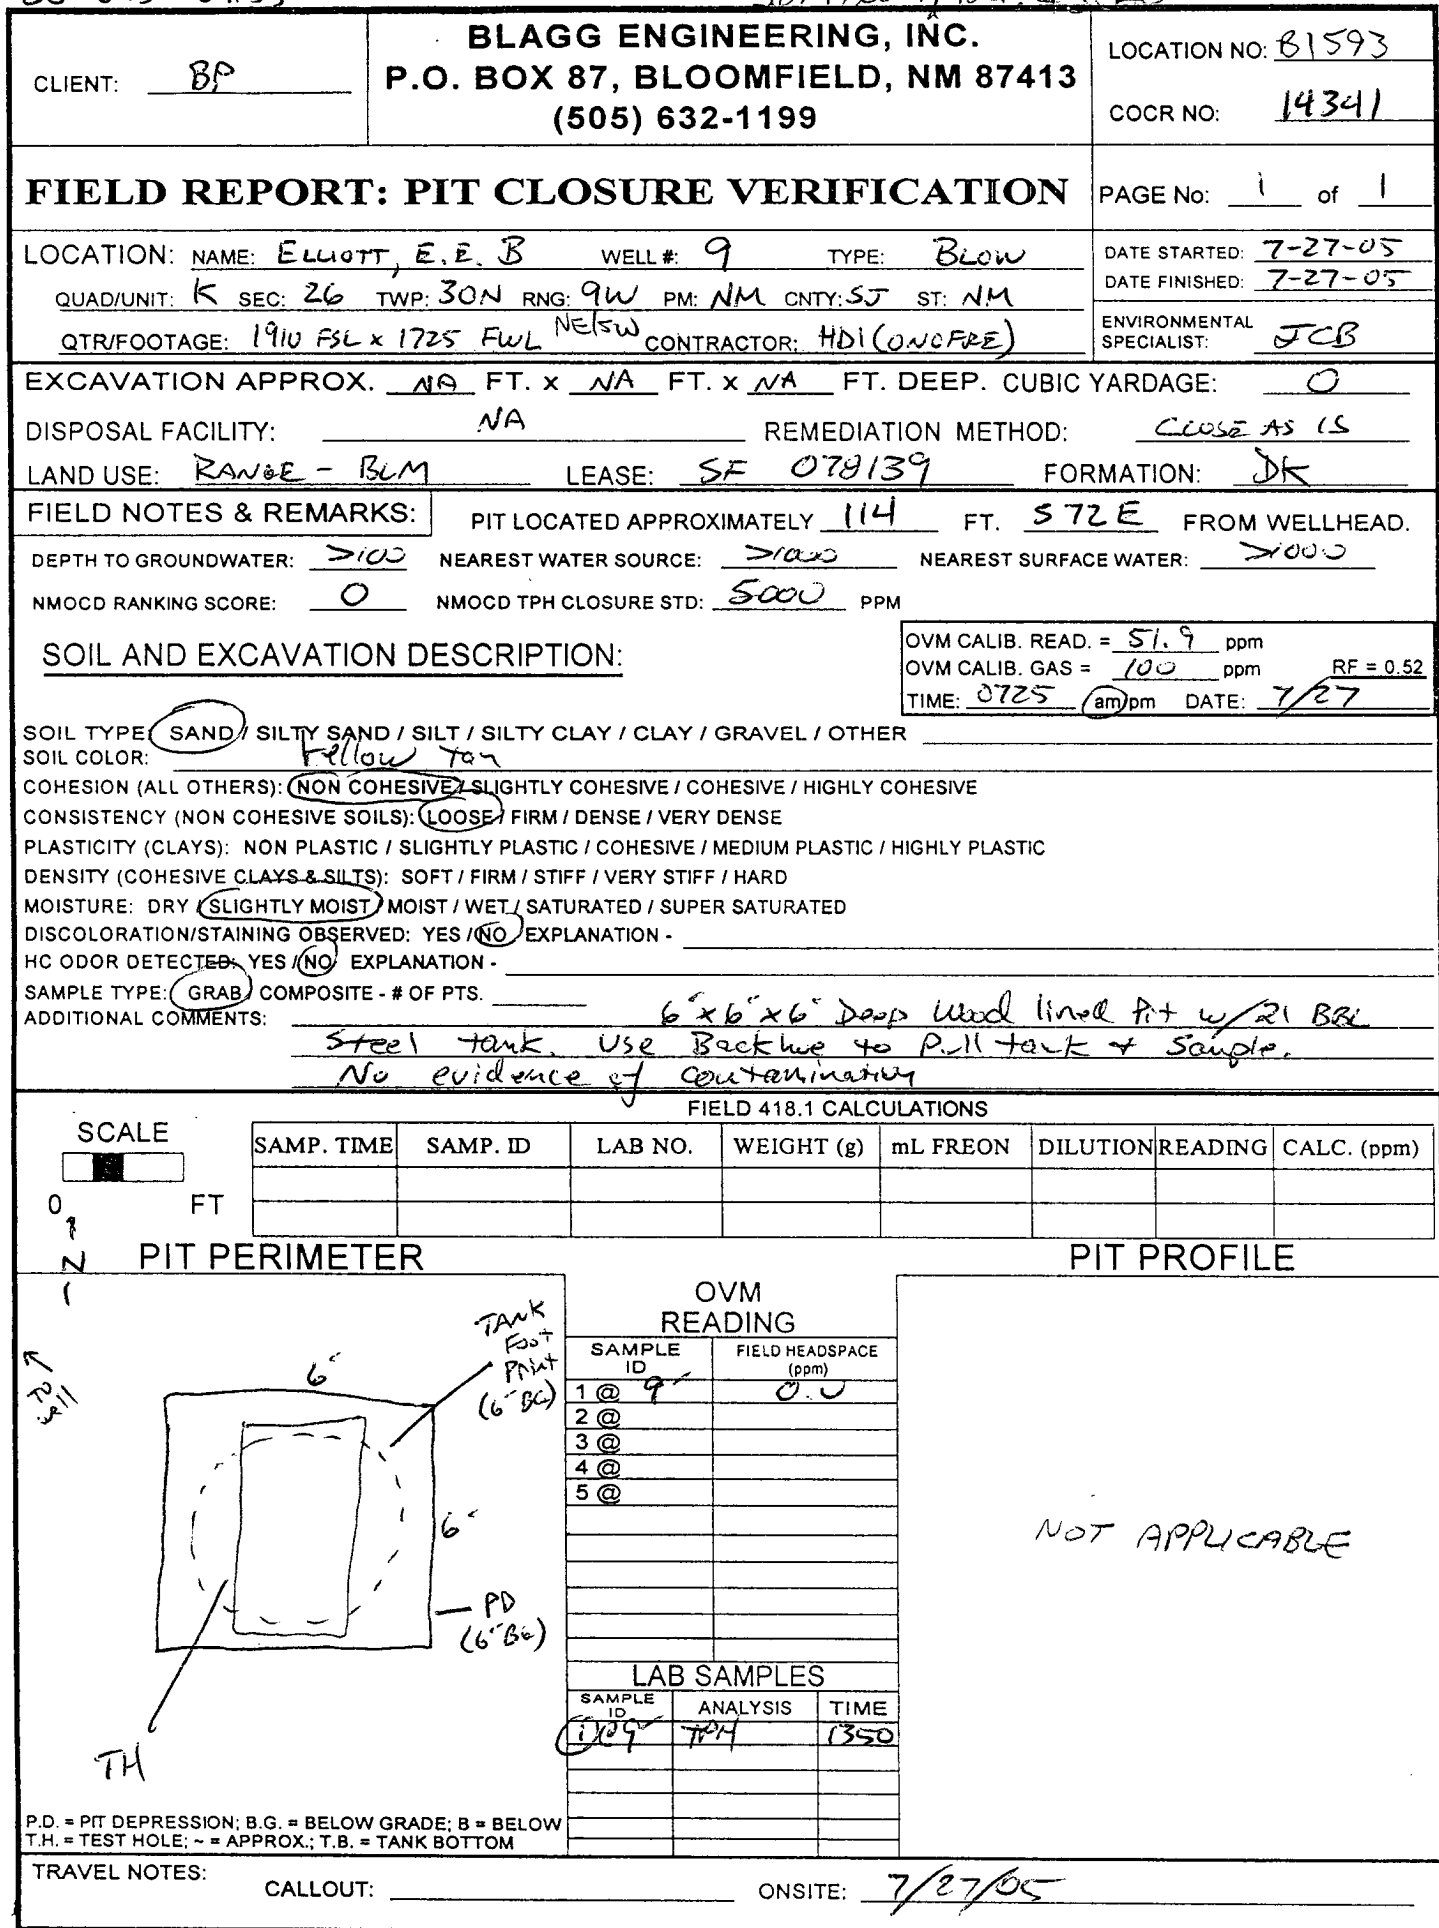 BLAGG ENGINEERING, INC.
P.O. BOX 87, BLOOMFIELD, NM 87413
(505) 632-1199
CLIENT: BP
LOCATION NO: B1593
COCR NO: 14341
FIELD REPORT: PIT CLOSURE VERIFICATION
PAGE No: 1 of 1
LOCATION: NAME: ELLIOTT, E.E. B WELL #: 9 TYPE: BLOW
QUAD/UNIT: K SEC: 26 TWP: 30N RNG: 9W PM: NM CNTY: SJ ST: NM
QTR/FOOTAGE: 1910 FSL x 1725 FWL NE/SW CONTRACTOR: HDI (ONOFRE)
DATE STARTED: 7-27-05
DATE FINISHED: 7-27-05
ENVIRONMENTAL
SPECIALIST: JCB
EXCAVATION APPROX. NA FT. x NA FT. x NA FT. DEEP. CUBIC YARDAGE: 0
DISPOSAL FACILITY: NA REMEDIATION METHOD: CLOSE AS IS
LAND USE: RANGE - BLM LEASE: SF 078139 FORMATION: DK
FIELD NOTES & REMARKS: PIT LOCATED APPROXIMATELY 114 FT. S72E FROM WELLHEAD.
DEPTH TO GROUNDWATER: >100 NEAREST WATER SOURCE: >1000 NEAREST SURFACE WATER: >1000
NMOCD RANKING SCORE: 0 NMOCD TPH CLOSURE STD: 5000 PPM
SOIL AND EXCAVATION DESCRIPTION:
OVM CALIB. READ. = 51.9 ppm
OVM CALIB. GAS = 100 ppm RF = 0.52
TIME: 0725 am/pm DATE: 7/27
SOIL TYPE: SAND / SILTY SAND / SILT / SILTY CLAY / CLAY / GRAVEL / OTHER
SOIL COLOR: Yellow tan
COHESION (ALL OTHERS): NON COHESIVE / SLIGHTLY COHESIVE / COHESIVE / HIGHLY COHESIVE
CONSISTENCY (NON COHESIVE SOILS): LOOSE / FIRM / DENSE / VERY DENSE
PLASTICITY (CLAYS): NON PLASTIC / SLIGHTLY PLASTIC / COHESIVE / MEDIUM PLASTIC / HIGHLY PLASTIC
DENSITY (COHESIVE CLAYS & SILTS): SOFT / FIRM / STIFF / VERY STIFF / HARD
MOISTURE: DRY / SLIGHTLY MOIST / MOIST / WET / SATURATED / SUPER SATURATED
DISCOLORATION/STAINING OBSERVED: YES / NO EXPLANATION -
HC ODOR DETECTED: YES / NO EXPLANATION -
SAMPLE TYPE: GRAB / COMPOSITE - # OF PTS.
ADDITIONAL COMMENTS: 6' x 6' x 6' Deep Wood lined Pit w/ 21 BBL
Steel tank. Use Backhoe to Pull tank & Sample.
No evidence of contamination
FIELD 418.1 CALCULATIONS
SCALE
0 FT
SAMP. TIME SAMP. ID LAB NO. WEIGHT (g) mL FREON DILUTION READING CALC. (ppm)
N
PIT PERIMETER
PIT PROFILE
To well
6'
TANK
Foot
Print
(6' BG)
6'
PD
(6' BG)
TH
OVM
READING
SAMPLE ID FIELD HEADSPACE (ppm)
1 @ 9' 0.0
2 @
3 @
4 @
5 @
NOT APPLICABLE
LAB SAMPLES
SAMPLE ID ANALYSIS TIME
1@9' TPH 1350
P.D. = PIT DEPRESSION; B.G. = BELOW GRADE; B = BELOW
T.H. = TEST HOLE; ~ = APPROX.; T.B. = TANK BOTTOM
TRAVEL NOTES:
CALLOUT: ONSITE: 7/27/05